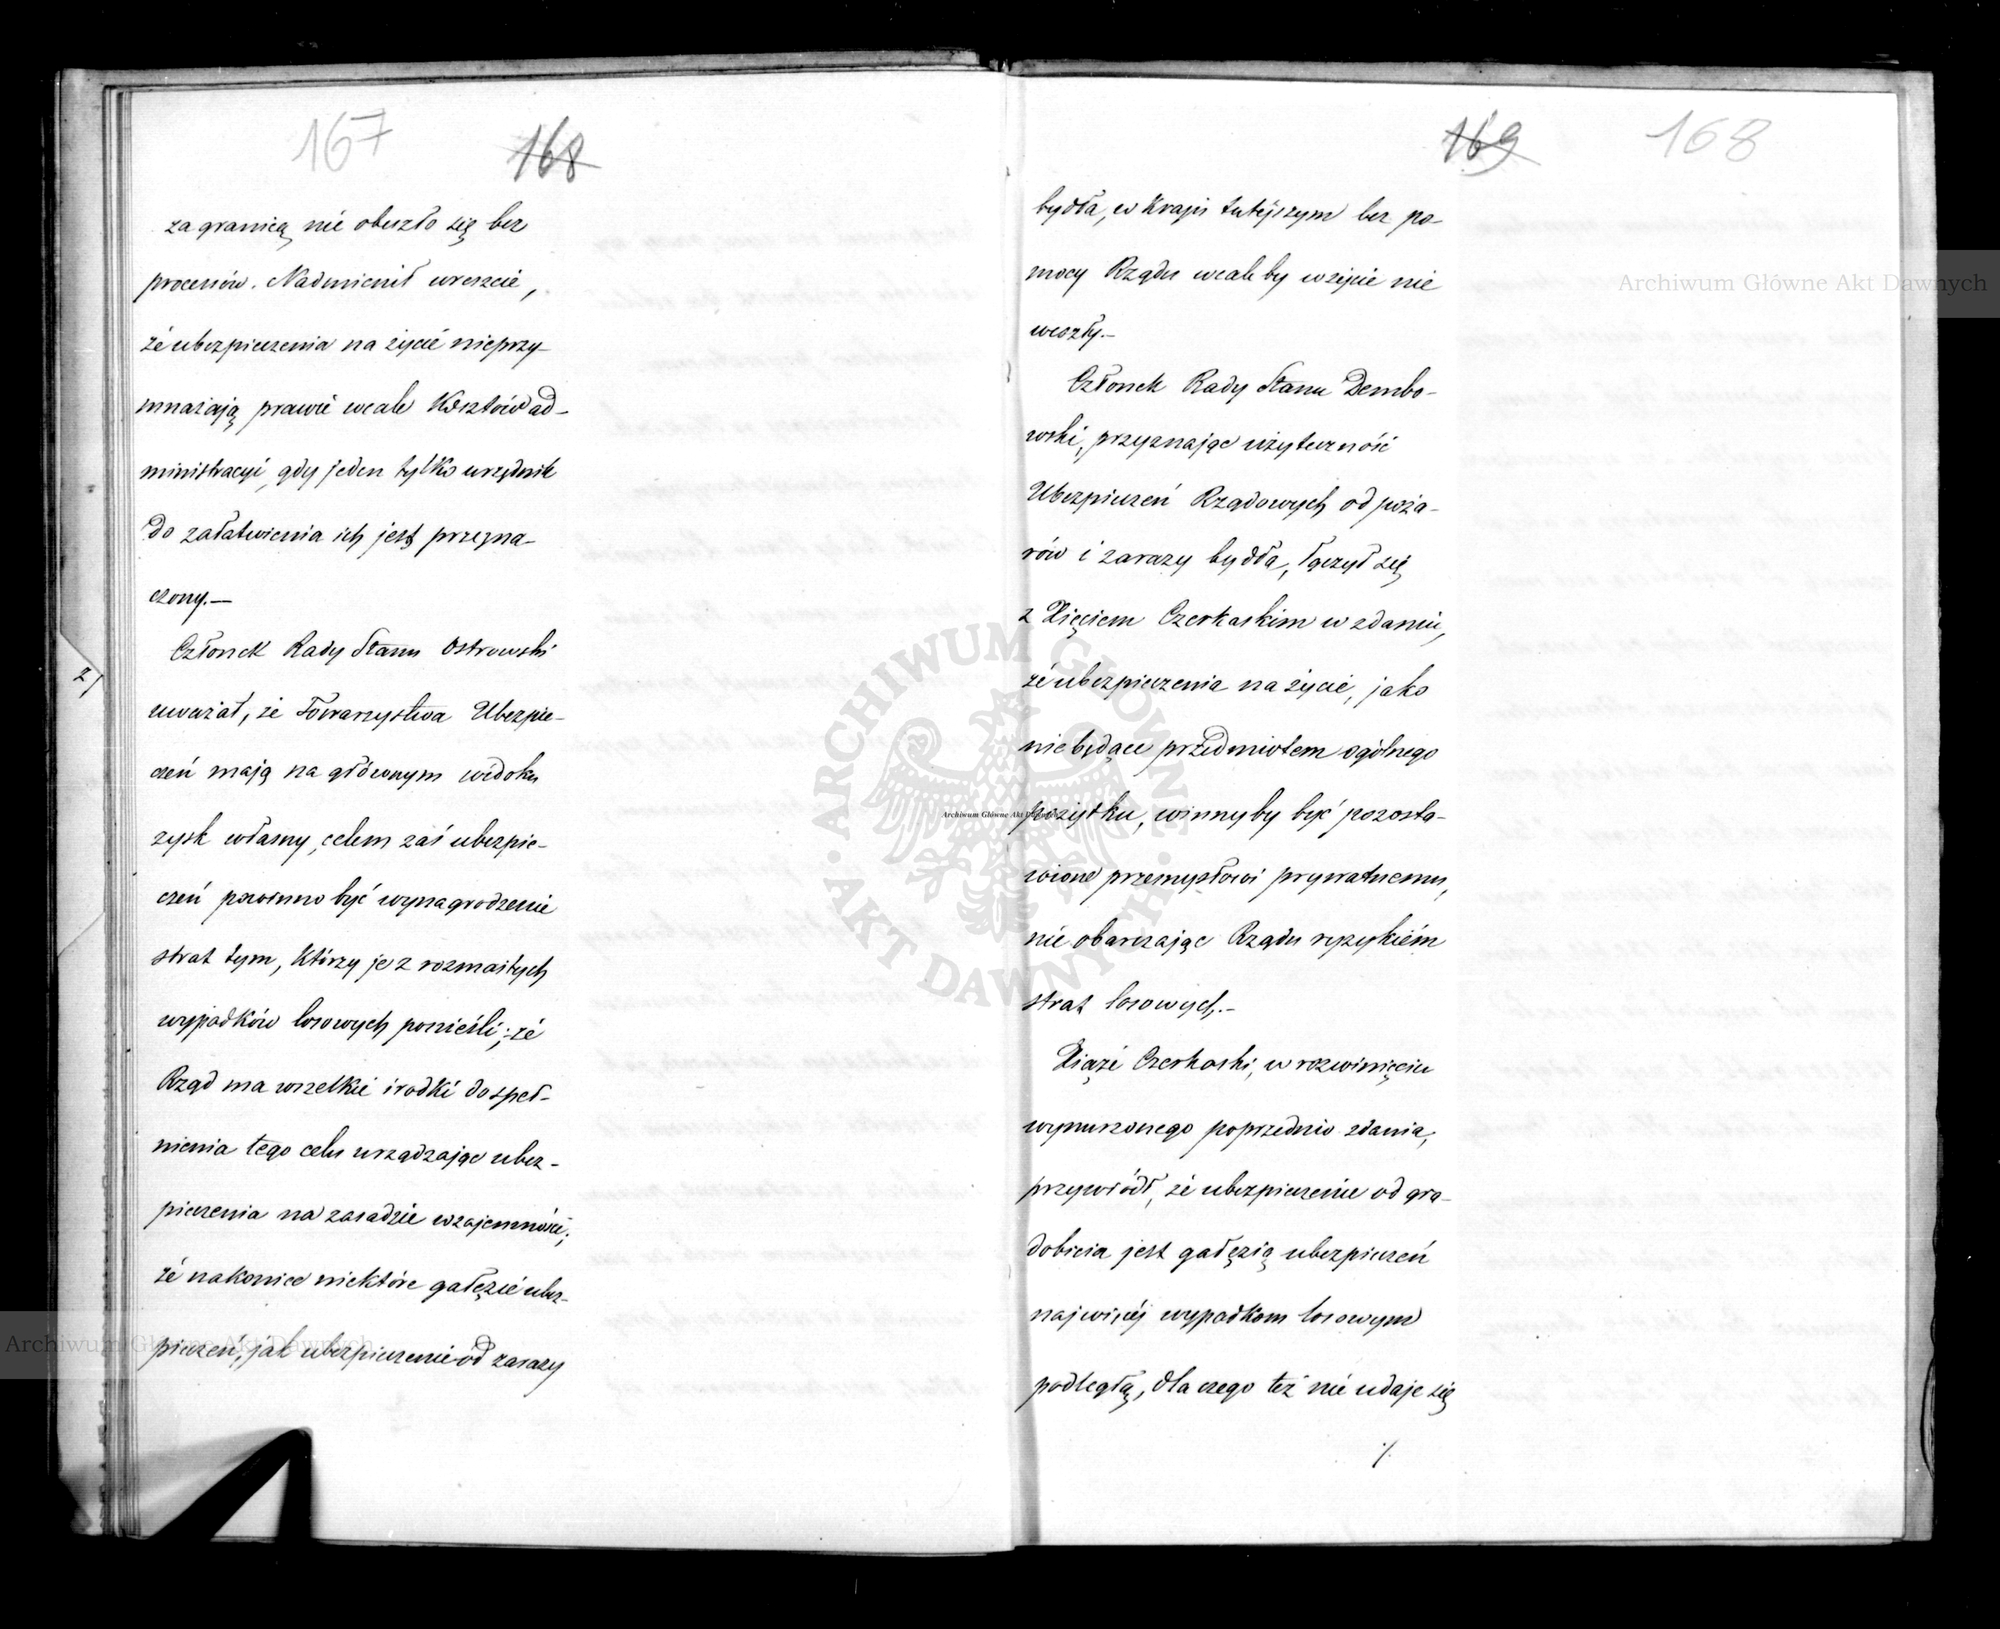 167 168
za granicą nie obeszło się bez
procesów. Nadmienił wreszcie,
że ubezpieczenia na życie nieprzy-
mnażają prawie wcale Kosztów ad-
ministracyi, gdy jeden tylko urzędnik
do załatwienia ich jest przezna-
czony.—
Członek Rady Stanu Ostrowski
uważał, że Towarzystwa Ubezpie-
czeń mają na głównym widoku
zysk własny, celem zaś ubezpie-
czeń powinno być wynagrodzenie
strat tym, którzy je z rozmaitych
wypadków losowych ponieśli; że
Rząd ma wszelkie środki do speł-
nienia tego celu urządzając ubez-
pieczenia na zasadzie wzajemności;
że nakoniec niektóre gałęzie ubez-
pieczeń, jak ubezpieczenie od zarazy
2/
169 168
bydła, w Kraju tutejszym bez po-
mocy Rządu wcale by w życie nie
weszły.—
Członek Rady Stanu Dembo-
wski, przyznając użyteczność
Ubezpieczeń Rządowych od poża-
rów i zarazy bydła, łączył się
z Xięciem Czerkaskim w zdaniu,
że ubezpieczenia na życie, jako
nie będące przedmiotem ogólnego
pożytku, winny by być pozosta-
wione przemysłowi prywatnemu,
nie obarczając Rządu ryzykiem
strat losowych.—
Xiąże Czerkaski, w rozwinięciu
wynurzonego poprzednio zdania,
przywiódł, że ubezpieczenie od gra-
dobicia jest gałęzią ubezpieczeń
najwięcej wypadkom losowym
podległą, dla czego też nie udaje się
./.
Archiwum Główne Akt Dawnych
Archiwum Główne Akt Dawnych
Archiwum Główne Akt Dawnych
ARCHIWUM GŁÓWNE AKT DAWNYCH